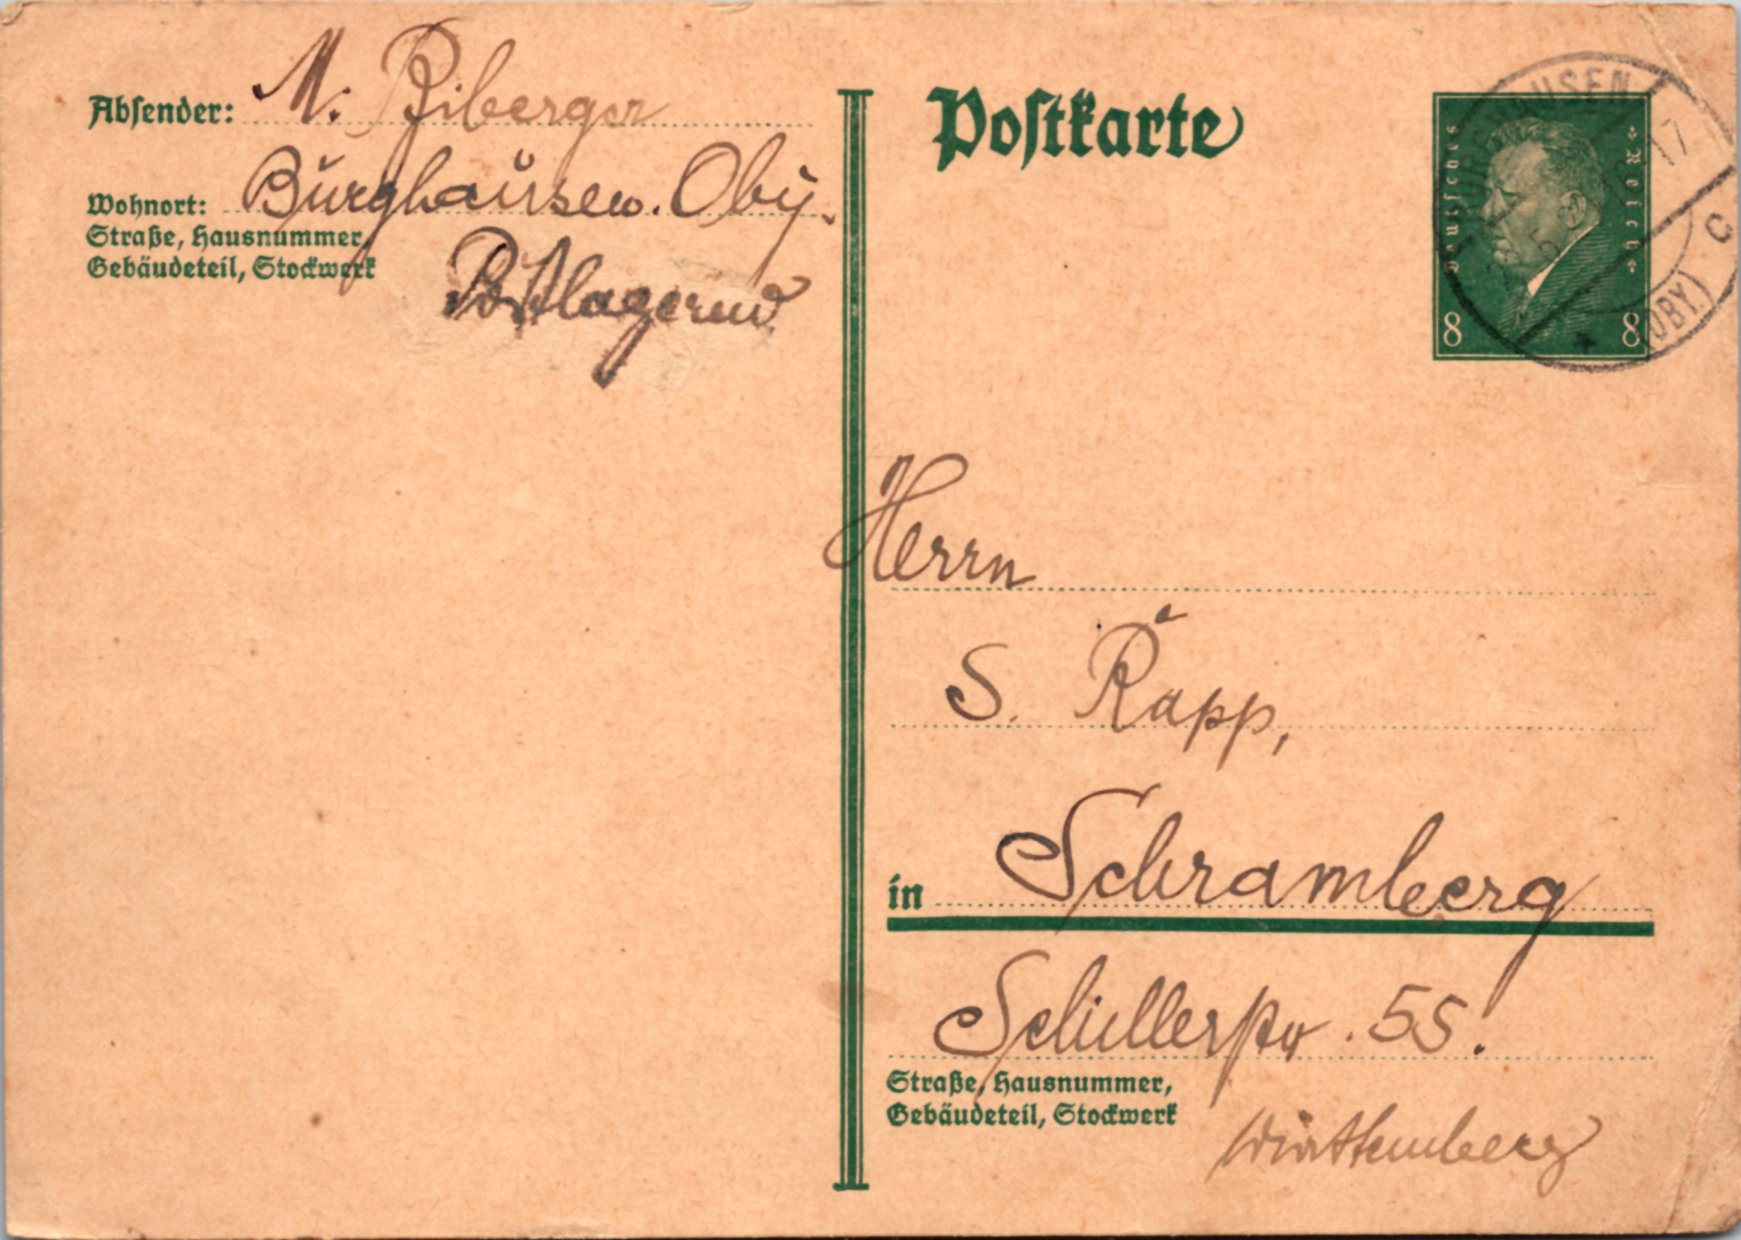 Absender: M. Biberger
Wohnort: Burghausen. Oby.
Straße, Hausnummer,
Gebäudeteil, Stockwerk
Postlagernd
Postkarte
Deutsches Reich
8 8
BURGHAUSEN
17
C
(OBY.)
Herrn
S. Rapp,
in Schramberg
Schillerstr. 55.
Straße, Hausnummer,
Gebäudeteil, Stockwerk
Württemberg